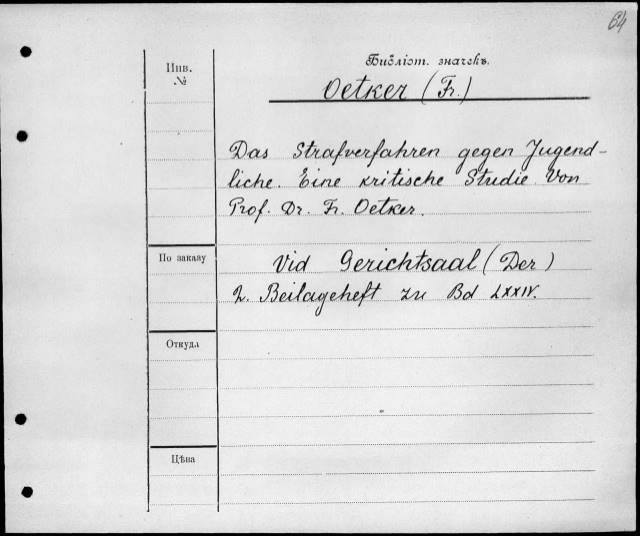 64
Инв.
№
Библіот. значекъ.
Oetker (Fr.)
Das Strafverfahren gegen Jugend-
liche. Eine kritische Studie. Von
Prof. Dr. Fr. Oetker.
По заказу
Vid Gerichtsaal (Der)
2. Beilageheft zu Bd LXXIV.
Откуда
Цѣна